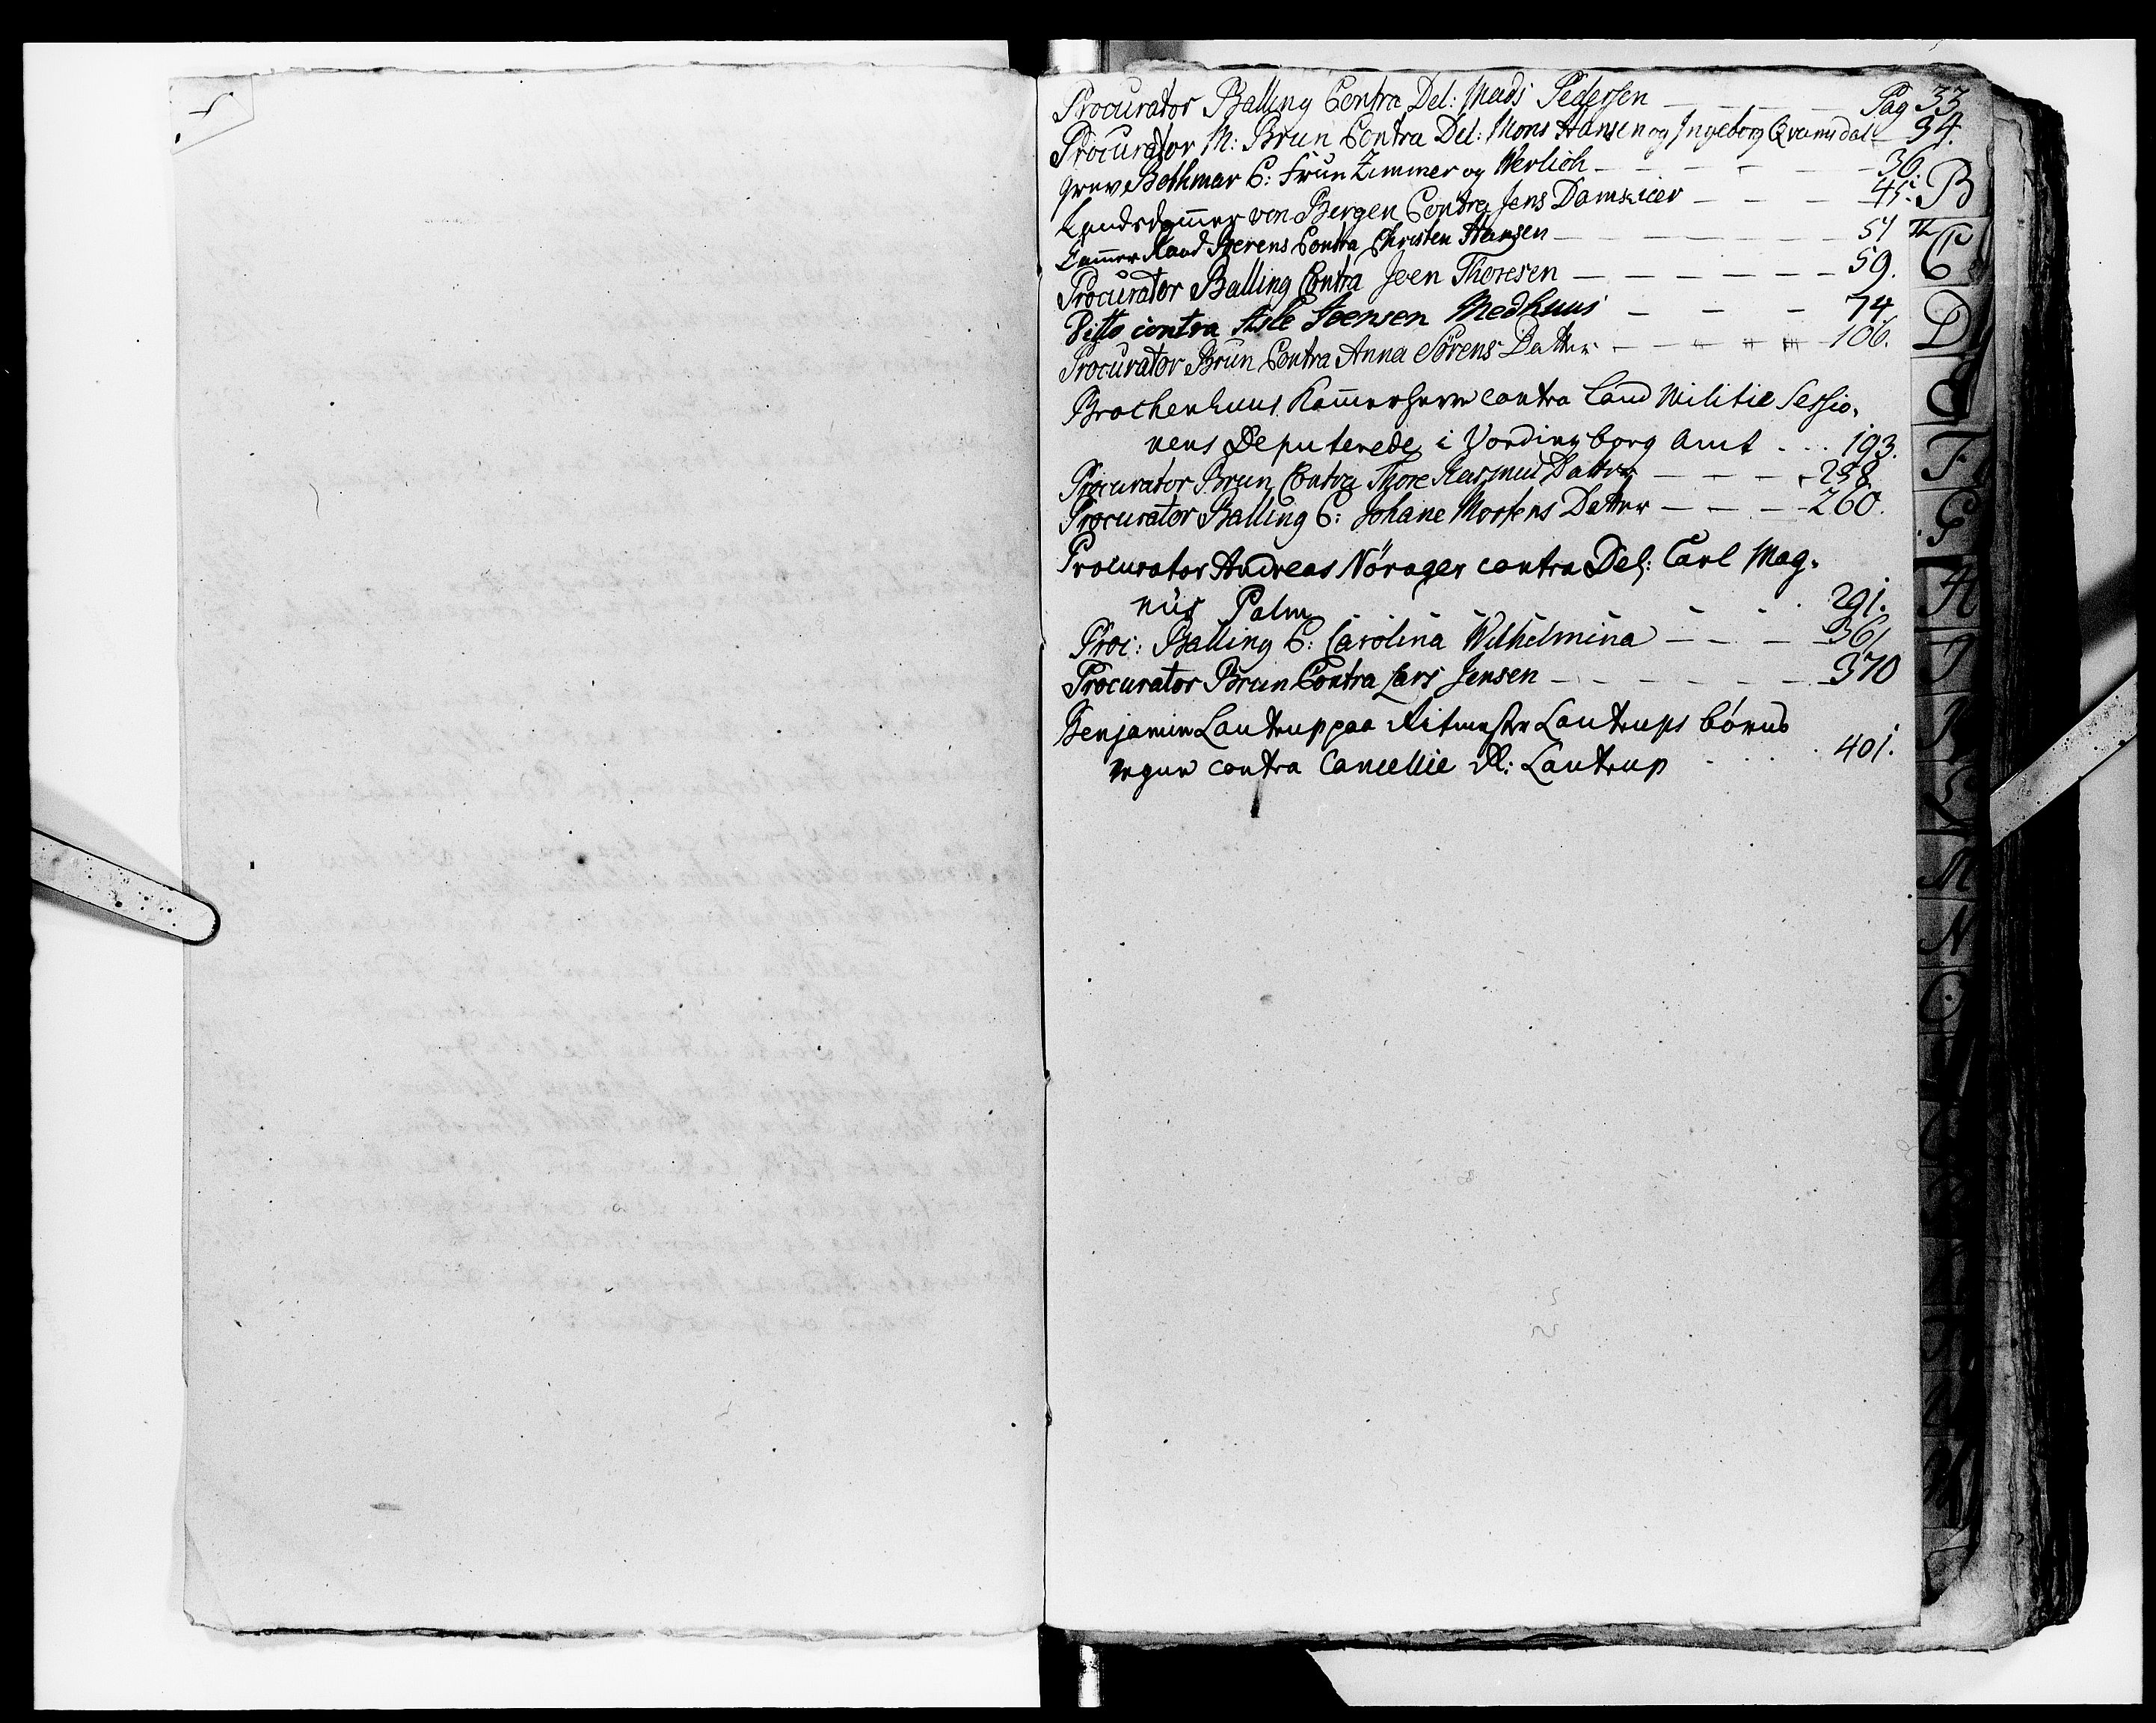 Procurator Balling Contra Del: Mads Pedersen — — — — Pag 33
Procurator M: Brun Contra Del: Mons Hansen og Ingeborg Qvamsdal — 34.
Grev Bothmar C: Frün Zimmer og Werlich — — — — 36.
Landsdomer von Bergen Contra Jens — — — 45.
Cammer Raad Berens Contra Christen Hansen — — — — — 51
Procurator Balling Contra Joen Thoresen — — — — — — 59.
Ditto contra Asle Joensen Medhuus — — — 74
Procurator Brün Contra Anna Sörens Datter — — — — — 106.
Brochenhuus Kammerherre contra Land Militie Sessio-
nens Deputerede i Vordingborg Amt . . . 193.
Procurator Brun Contra Thore Rasmus Datter — — — 238
Procurator Balling C: Johane Mortens Datter — — — 260.
Procurator Andreas Nörager contra Del: Carl Mag-
nüs Palm — — — — — 291.
Proc: Balling C: Carolina Wilhelmina — — — 361
Procurator Brun Contra Lars Jensen — — — — — — 370
Benjamin Lautrup paa Ritmester Lautrups börns
vegne contra Cancellie R: Lautrup . . . . 401.
B
C
D
F
G
H
I
K
L
M
N
O